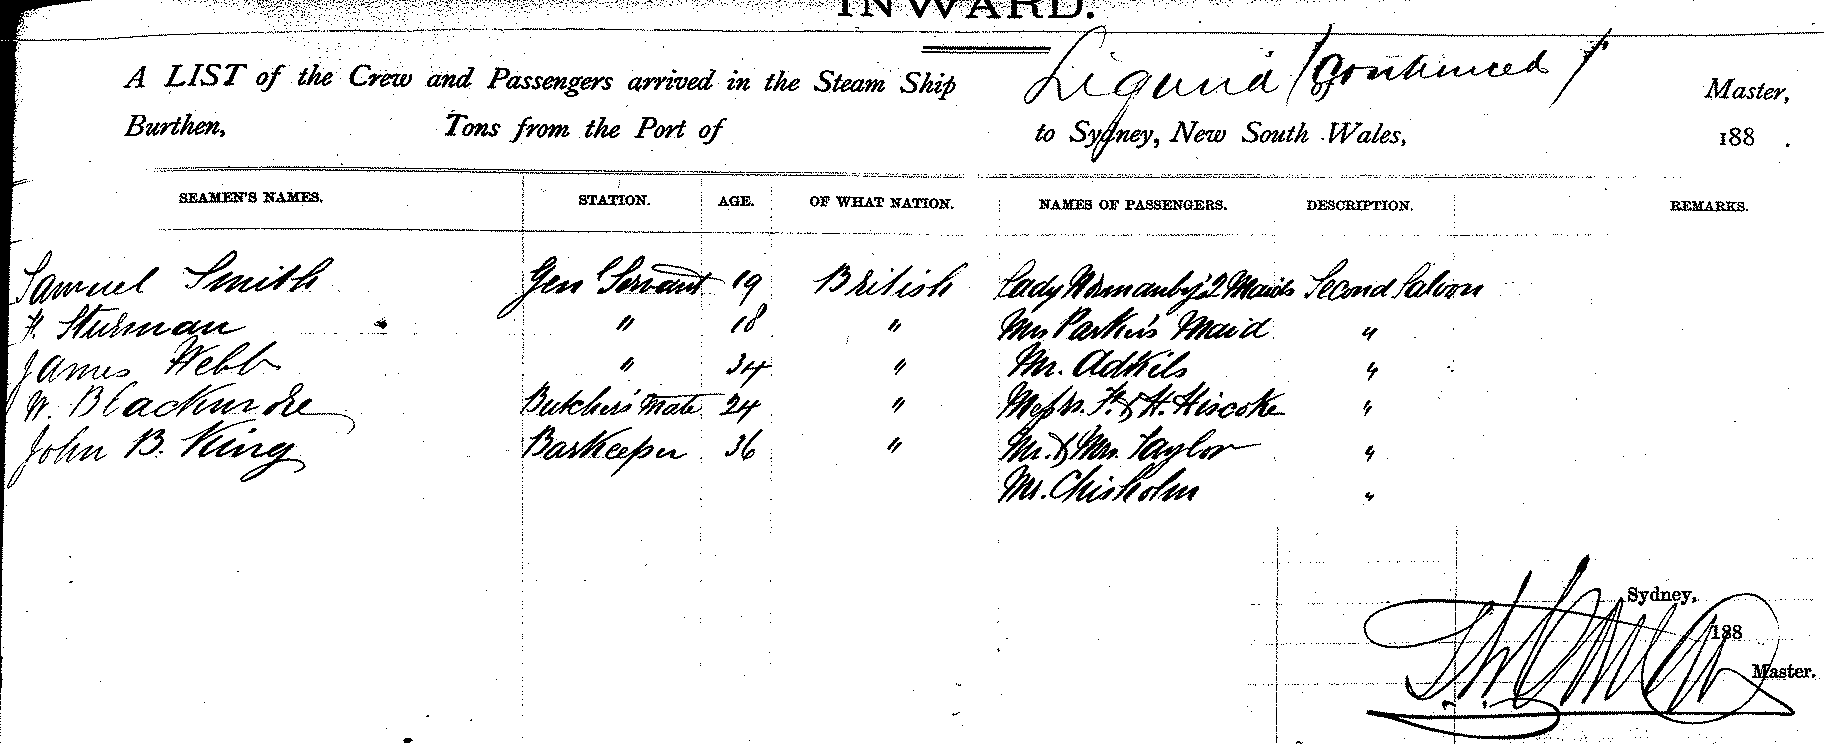 INWARD.
A LIST of the Crew and Passengers arrived in the Steam Ship Liguria (Continued) of Master,
Burthen, Tons from the Port of to Sydney, New South Wales, 188 .
SEAMEN'S NAMES. STATION. AGE. OF WHAT NATION. NAMES OF PASSENGERS. DESCRIPTION. REMARKS.
Samuel Smith Genl Servant 19 British Lady Normanby's 2 Maids Second Saloon
H. Sturman " 18 " Mrs Parker's Maid "
James Webb " 34 " Mr. Adkils "
W. Blackmore Butcher's Mate 24 " Messrs. F. & H. Hiscoke "
John B. King Barkeeper 36 " Mr. & Mrs. Taylor "
Mr. Chisholm "
Sydney,
188
Master.